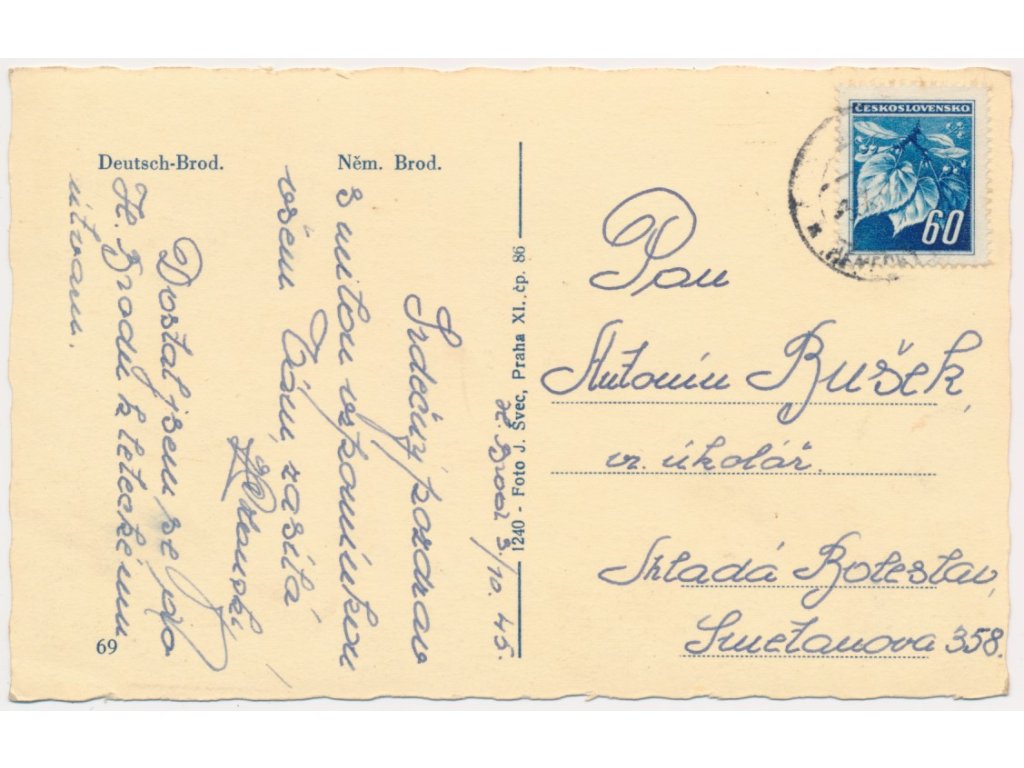 ČESKOSLOVENSKO
60
Deutsch-Brod.
Něm. Brod.
1240 - Foto J. Švec, Praha XI., čp. 86
69
H. Brod 3/10. 45.
Srdečný pozdrav
s milou vzpomínkou
všem Vám zasílá
Dostal jsem se do
H. Brodu k leteckému
útvaru.
Pan
Antonín Bušek,
vr. úkolář.
Mladá Boleslav,
Smetanova 358.